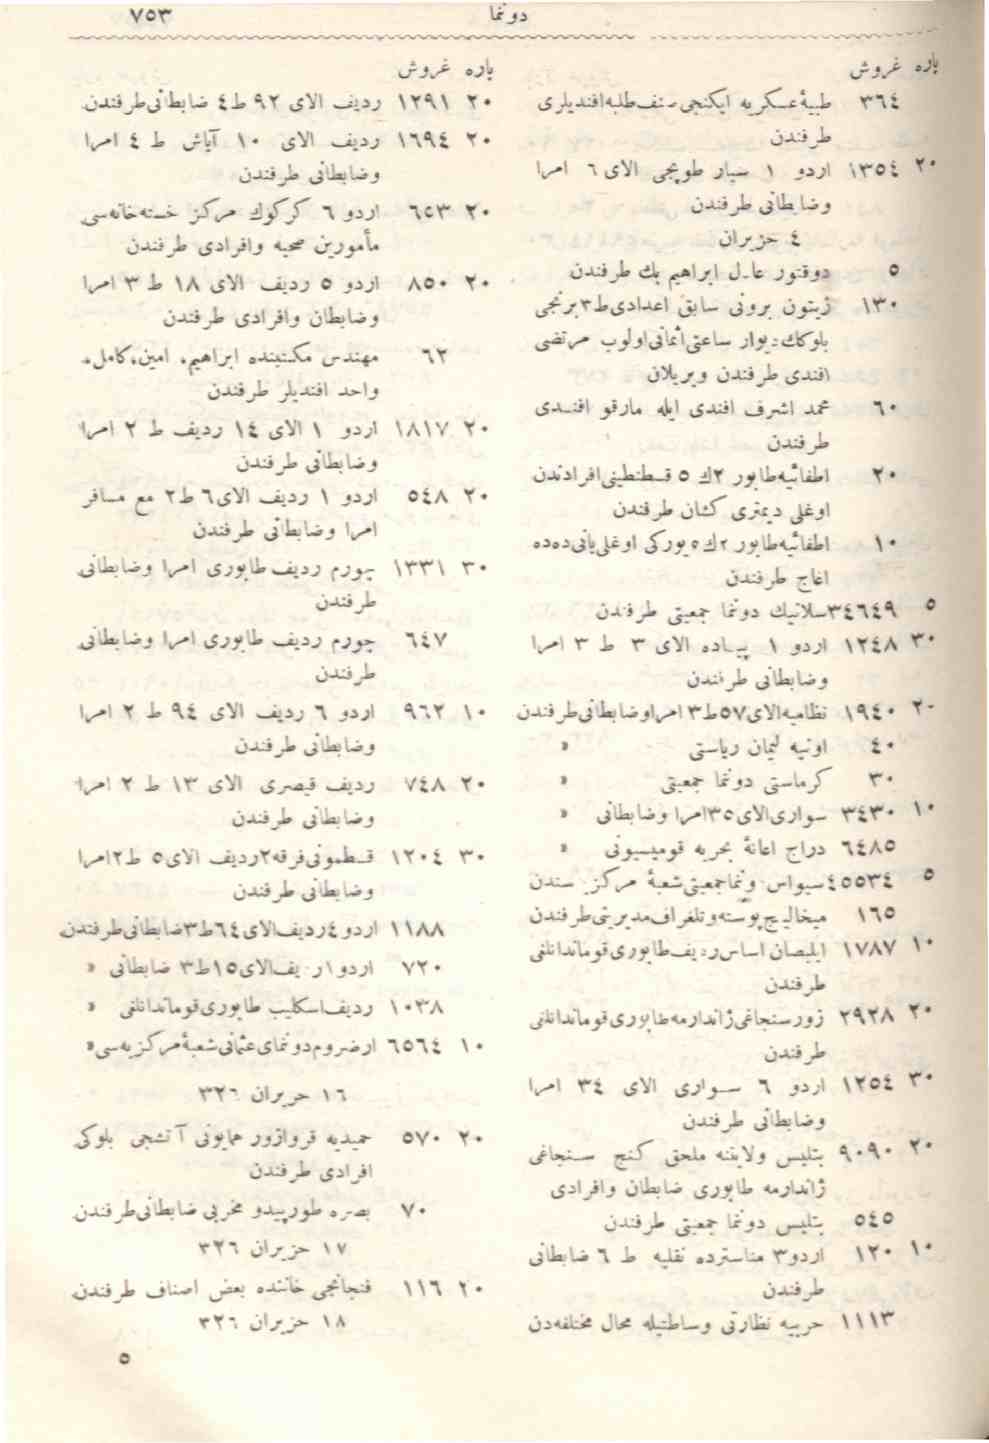 ٧٥٣ دونما
پاره غروش
٣٦٤ طبيۀ عسكريه ايكنجى صنف طلبه افنديلرى
طرفندن
٢٠ ١٣٥٤ اردو ١ سيار طوپجى الاى ٦ امرا
وضابطانى طرفندن
٤ حزيران
٥ دوقتور عادل ابراهيم بك طرفندن
١٣٠ زيتون برونى سابق اعدادى ط ٣ برنجى
بلوكك ديوار ساعتى اثمانى اولوب مرتضى
افندى طرفندن ويريلان
٦٠ محمد اشرف افندى ايله مارقو افندى
طرفندن
٢٠ اطفائيه طابور ٢ ك ٥ قسطنطينى افرادندن
اوغلى ديمترى كشان طرفندن
١٠ اطفائيه طابور ٢ ك ٥ يوركى اوغلى يانى دده
اغاج طرفندن
٥ ٣٤٦٤٩ سلانيك دونما جمعيتى طرفندن
٣٠ ١٢٤٨ اردو ١ پياده الاى ٣ ط ٣ امرا
وضابطانى طرفندن
٢٠ ١٩٤٠ نظاميه الاى ٥٧ ط ٣ امرا وضابطانى طرفندن
٤٠ اونيه ليمان رياستى »
٣٠ كرماستى دونما جمعيتى »
١٠ ٣٤٣٠ سوارى الاى ٣٥ امرا وضابطانى »
٦٤٨٥ دراج اعانۀ بحريه قوميسيونى »
٥ ٤٥٥٣٤ سيواس دونما جمعيتى شعبۀ مركزيسندن
١٦٥ ميخاليج پوسته وتلغراف مديريتى طرفندن
١٠ ١٧٨٧ ايلبصان اساس رديف طابورى قوماندانلغى
طرفندن
٢٠ ٢٩٢٨ زور سنجاغى ژاندارمه طابورى قوماندانلغى
طرفندن
٣٠ ١٢٥٤ اردو ٦ سوارى الاى ٣٤ امرا
وضابطانى طرفندن
٢٠ ٩٠٩٠ بتليس ولايتنه ملحق كنج سنجاغى
ژاندارمه طابورى ضابطان وافرادى
٥٤٥ بتليس دونما جمعيتى طرفندن
١٠ ١٢٠ اردو ٣ مناسترده نقليه ط ٦ ضابطانى
طرفندن
١١١٣ حربيه نظارتى وساطتيله محال مختلفه دن
پاره غروش
٢٠ ١٢٩١ رديف الاى ٩٢ ط ٤ ضابطانى طرفندن
٢٠ ١٦٩٤ رديف الاى ١٠ آياش ط ٤ امرا
وضابطانى طرفندن
٢٠ ٦٥٣ اردو ٦ كركوك مركز خسته خانه سى
مأمورين صحيه وافرادى طرفندن
٢٠ ٨٥٠ اردو ٥ رديف الاى ١٨ ط ٣ امرا
وضابطان وافرادى طرفندن
٦٢ مهندس مكتبنده ابراهيم، امين، كامل،
واحد افنديلر طرفندن
٢٠ ١٨١٧ اردو ١ الاى ١٤ رديف ط ٢ امرا
وضابطانى طرفندن
٢٠ ٥٤٨ اردو ١ رديف الاى ٦ ط ٢ مع مسافر
امرا وضابطانى طرفندن
٣٠ ١٣٣١ چورم رديف طابورى امرا وضابطانى
طرفندن
٦٤٧ چورم رديف طابورى امرا وضابطانى
طرفندن
١٠ ٩٦٢ اردو ٦ رديف الاى ٩٤ ط ٢ امرا
وضابطانى طرفندن
٢٠ ٧٤٨ رديف قيصرى الاى ١٣ ط ٢ امرا
وضابطانى طرفندن
٣٠ ١٢٠٤ قسطمونى فرقه ٢ رديف الاى ٥ ط ٢ امرا
وضابطانى طرفندن
١١٨٨ اردو ٤ رديف الاى ٦٤ ط ٣ ضابطانى طرفندن
٧٢٠ اردو ١ رديف الاى ١٥ ط ٣ ضابطانى »
١٠٣٨ رديف اسكليب طابورى قوماندانلغى »
١٠ ٦٥٦٤ ارضروم دونماى عثمانى شعبۀ مركزيه سى »
١٦ حزيران ٣٢٦
٢٠ ٥٧٠ حميديه قروازور همايونى آتشجى بلوكى
افرادى طرفندن
٧٠ بصره طورپيدو مخربى ضابطانى طرفندن
١٧ حزيران ٣٢٦
٢٠ ١١٦ فنجانجى خاننده بعض اصناف طرفندن
١٨ حزيران ٣٢٦
٥